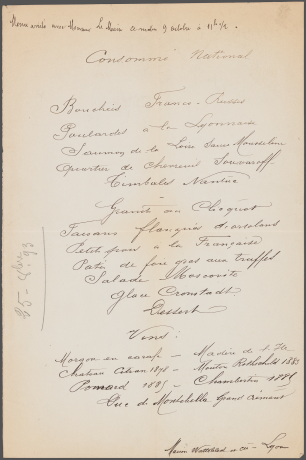 Menu arrêté avec Monsieur Le Maire à 9 octobre à 11h 1/2.
Consommé National
Bouchées Franco-Russes
Poulardes à la Lyonnaise
Saumon de la Loire Sauce Mousseline
Quartier de Chevreuil Souwaroff
Timbales Nantua
Granit au Clicquot
Faisans flanqués d'ortolans
Petits pois à la Française
Pâté de foie gras aux truffes
Salade Moscovite
Glace Cronstadt
Dessert
25 - 93
Vins :
Morgon en carafe — Madère
Château 1878 — Mouton Rothschild 1883
Pomard 1885 — Chambertin
Duc de Montebello Grand crémant
Maison & Cie - Lyon